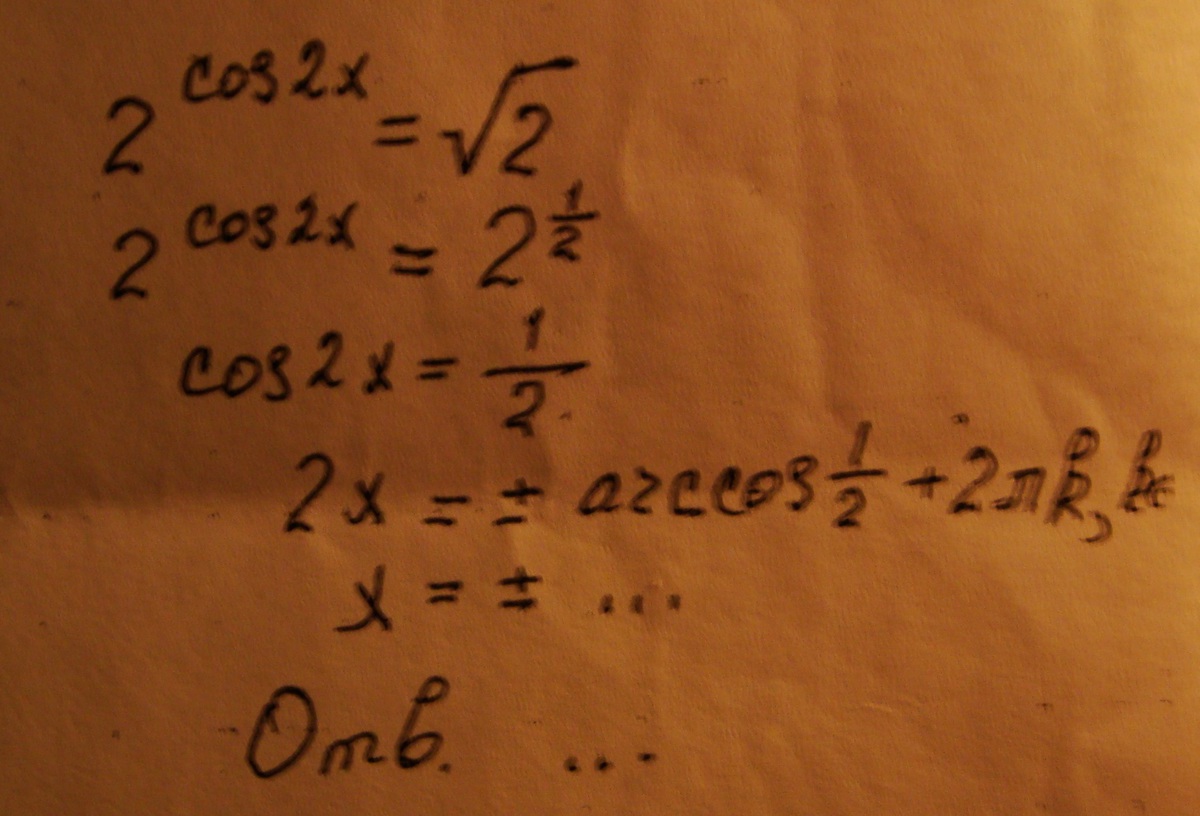 2^cos2x = √2
2^cos2x = 2^1/2
cos2x = 1/2
2x = ± arccos 1/2 + 2πk, k∈
x = ± ...
Отв. ...